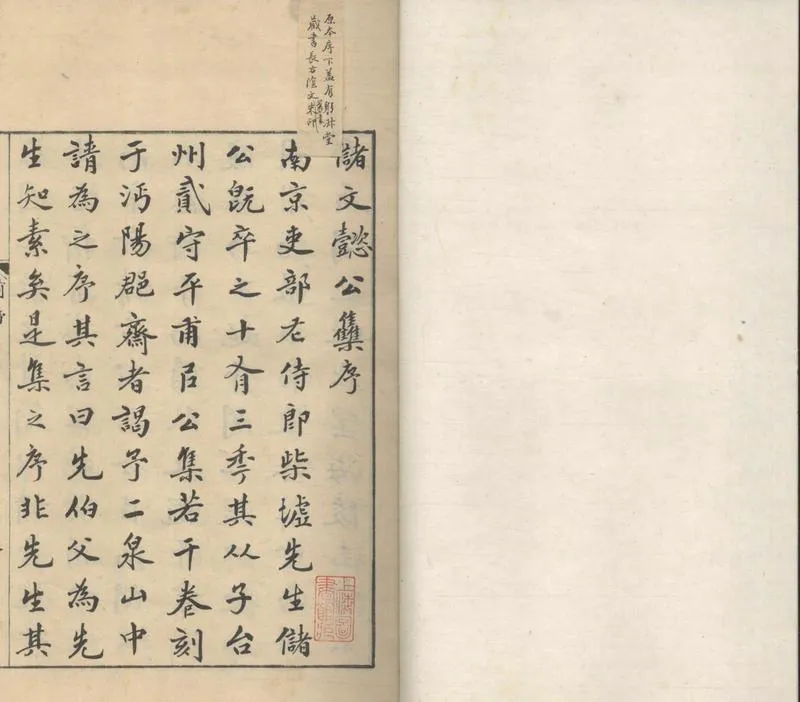 原本序下蓋有堂
藏書長方陰文朱印
儲文懿公雧序
南京吏部左侍郎柴墟先生儲
公旣卒之十有三秊其从子台
州貳守平甫㠯公集若干卷刻
于沔陽郡齋者謁予二泉山中
請為之序其言曰先伯父為先
生知素矣是集之序非先生其
上海圖
書館藏